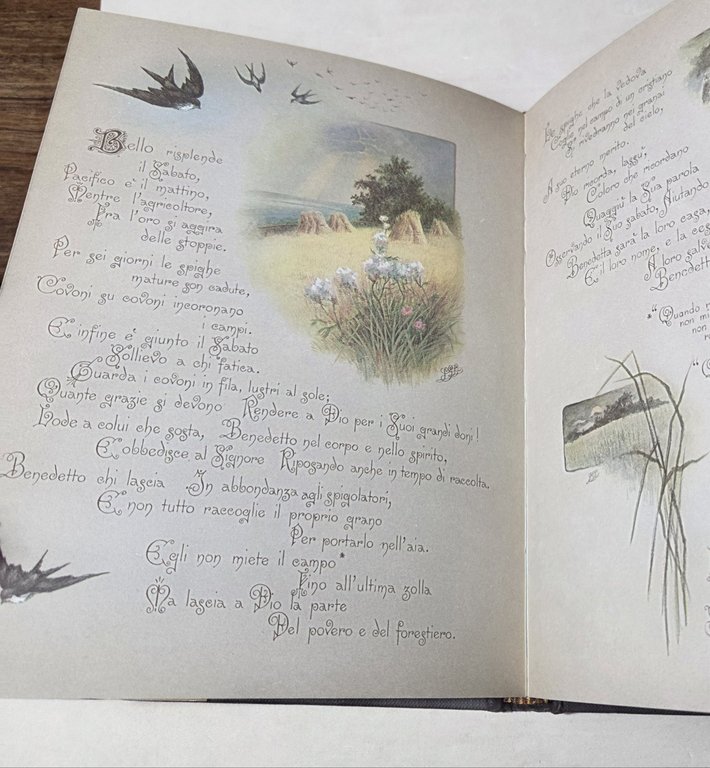 Bello risplende
il Sabato,
Pacifico e' il mattino,
Mentre l'agricoltore,
Fra l'oro si aggira
delle stoppie.
Per sei giorni le spighe
mature son cadute,
Covoni su covoni incoronano
i campi.
E infine e' giunto il Sabato
Sollievo a chi fatica.
Guarda i covoni in fila, lustri al sole;
Quante grazie si devono Rendere a Dio per i Suoi grandi doni!
Lode a colui che sosta, Benedetto nel corpo e nello spirito,
E obbedisce al Signore Riposando anche in tempo di raccolta.
Benedetto chi lascia In abbondanza agli spigolatori,
E non tutto raccoglie il proprio grano
Per portarlo nell'aia.
Egli non miete il campo*
Fino all'ultima zolla
Ma lascia a Dio la parte
Del povero e del forestiero.
Le spighe che la vedova
Coglie nel campo di un cristiano
Si rivedranno nei granai
del cielo,
A suo eterno merito.
Dio ricorda, lassu',
Coloro che ricordano
Quaggiu' la Sua parola
Osservando il Suo sabato, Aiutando
Benedetta sara' la loro casa,
E il loro nome, e la
A loro
*"Quando
non